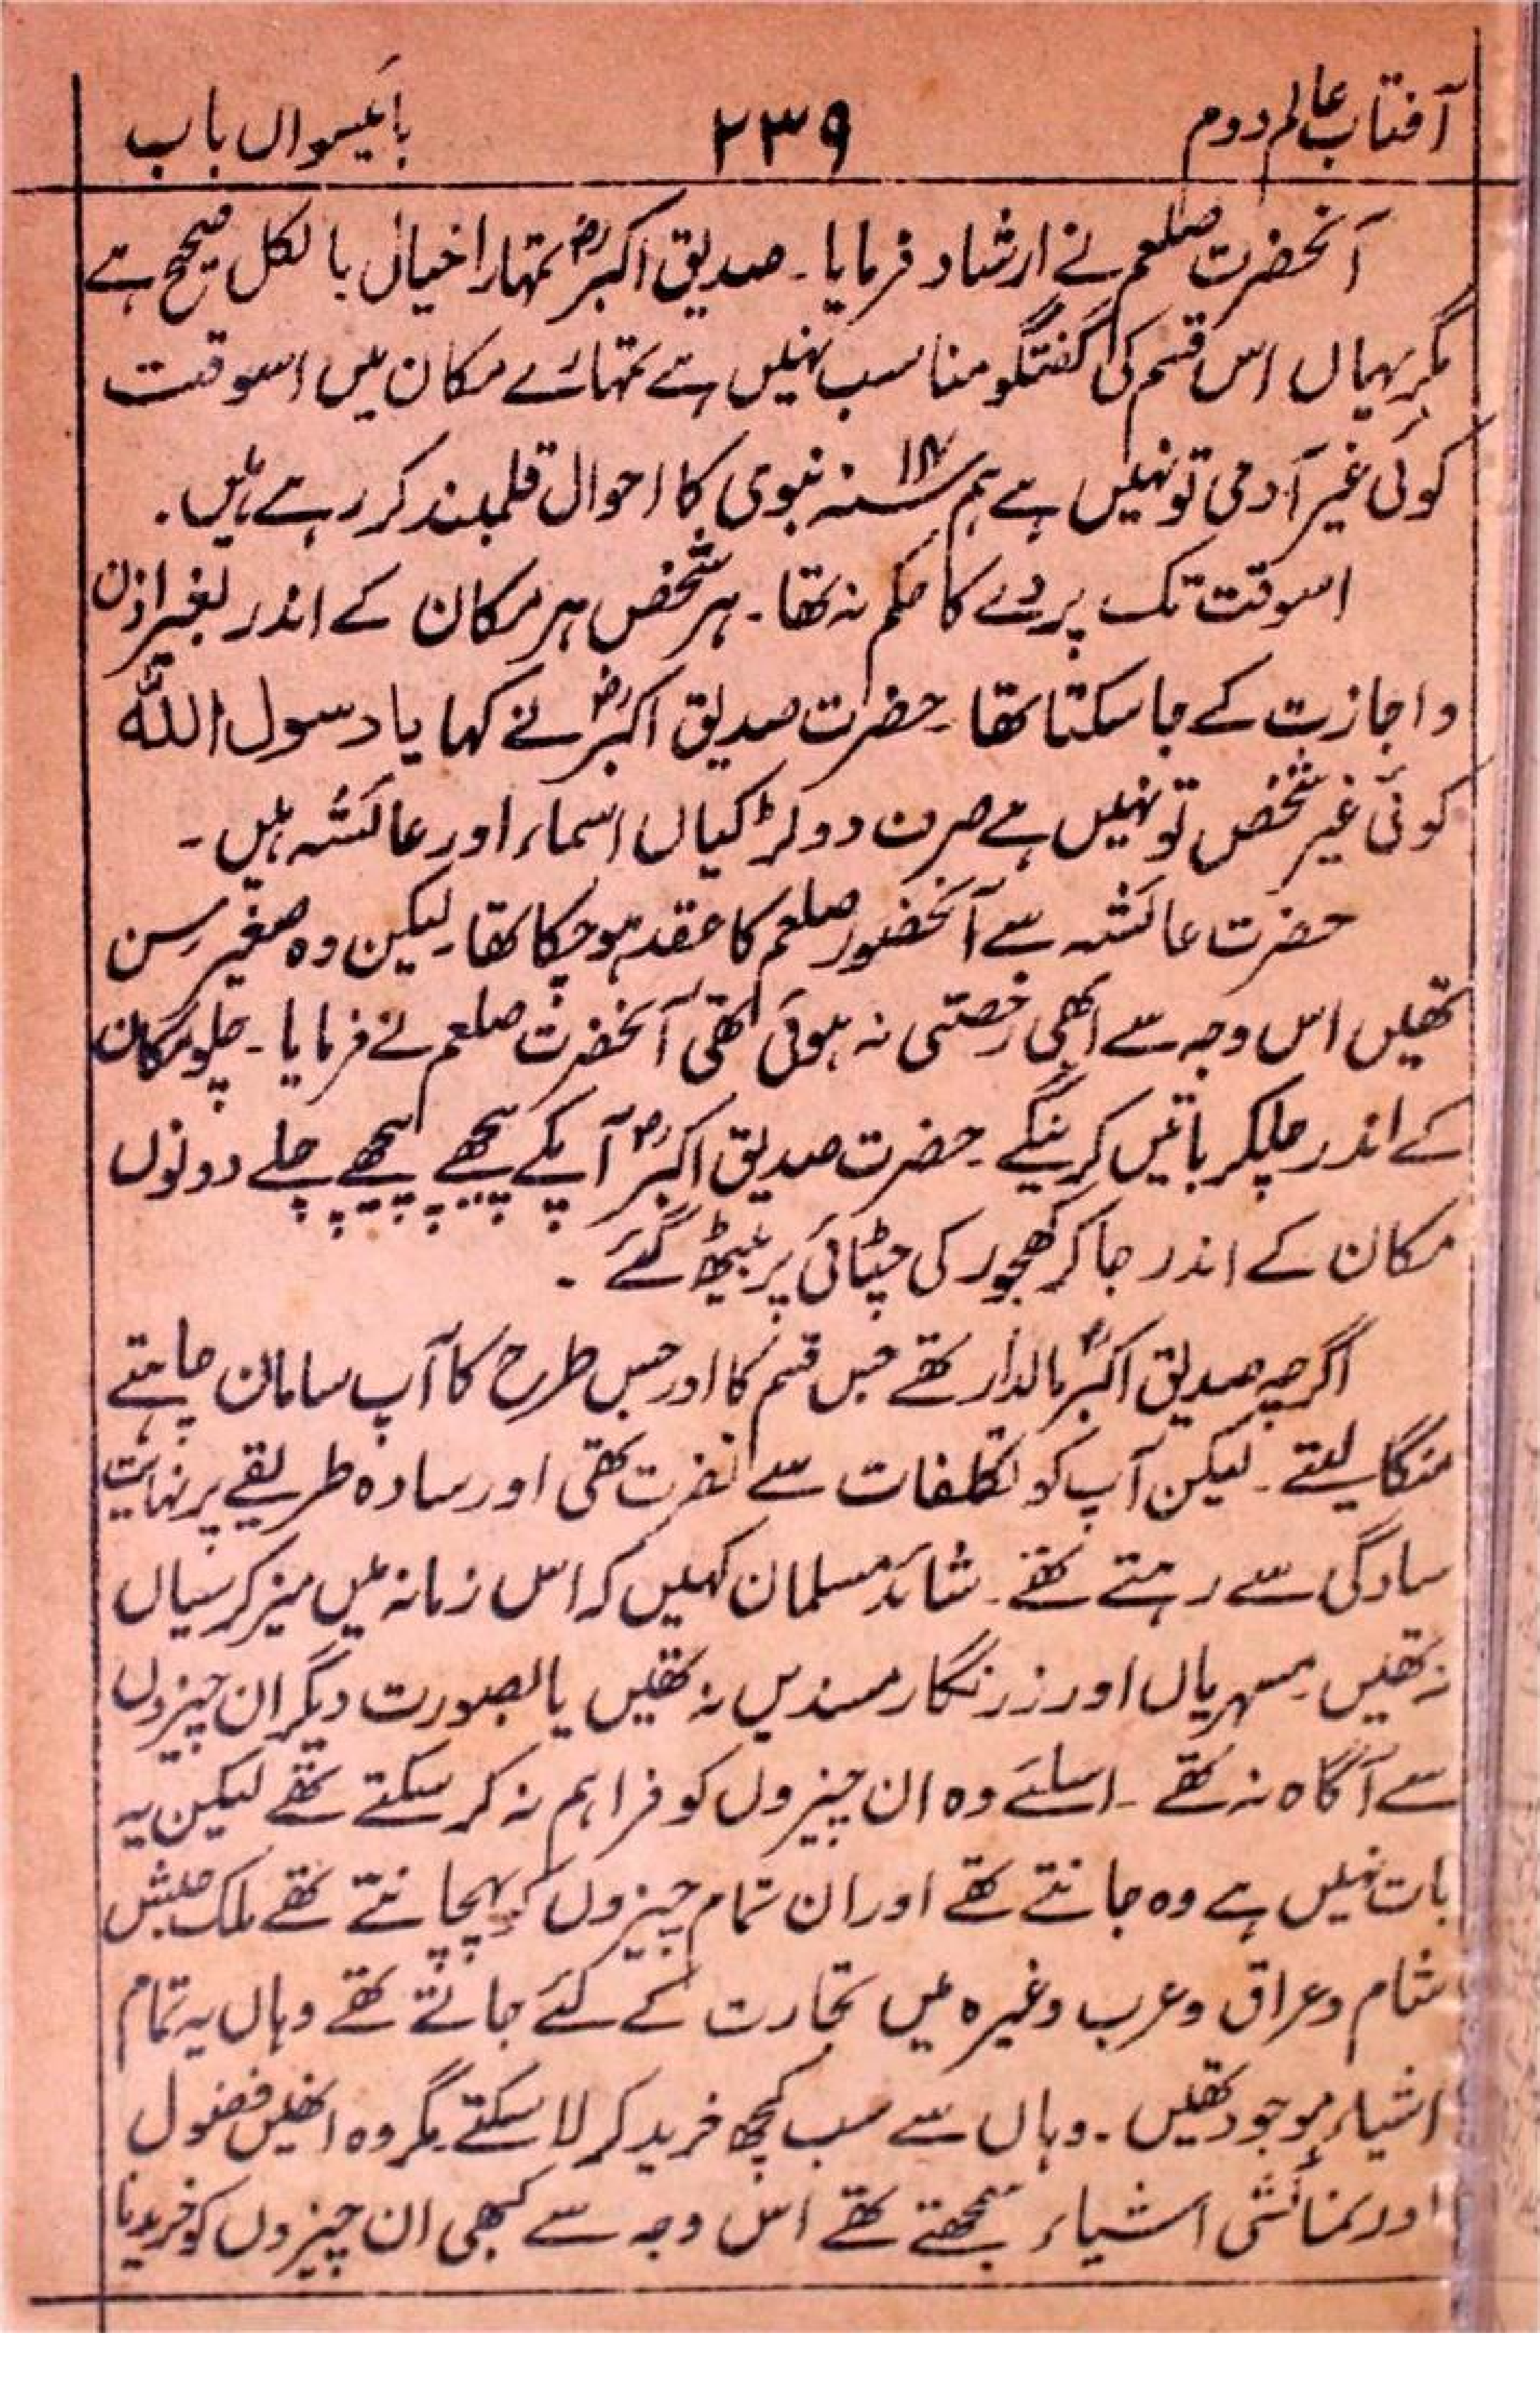 آفتاب عالم دوم ۲۳۹ بائیسواں باب
آنحضرت صلعم نے ارشاد فرمایا۔ صدیق اکبرؓ تمہارا خیال بالکل صحیح ہے
مگر یہاں اس قسم کی گفتگو مناسب نہیں ہے تمہارے مکان میں اسوقت
کوئی غیر آدمی تو نہیں ہے ہم سنہ نبوی کا احوال قلمبند کر رہے ہیں۔
اسوقت تک پردے کا حکم نہ تھا۔ ہر شخص ہر مکان کے اندر بغیر اذن
و اجازت کے جا سکتا تھا۔ حضرت صدیق اکبرؓ نے کہا یا رسول اللہ
کوئی غیر شخص تو نہیں ہے صرف دو لڑکیاں اسماء اور عائشہ ہیں۔
حضرت عائشہ سے آنحضور صلعم کا عقد ہو چکا تھا۔ لیکن وہ صغیر سن
تھیں اس وجہ سے ابھی رخصتی نہ ہوئی تھی آنحضرت صلعم نے فرمایا۔ چلو مکان
کے اندر چلکر باتیں کرینگے۔ حضرت صدیق اکبرؓ آپکے پیچھے پیچھے چلے دونوں
مکان کے اندر جا کر کھجور کی چٹائی پر بیٹھ گئے۔
اگرچہ صدیق اکبرؓ مالدار تھے جس قسم کا اور جس طرح کا آپ سامان چاہتے
منگا لیتے۔ لیکن آپ کو تکلفات سے نفرت تھی اور سادہ طریقے پر نہایت
سادگی سے رہتے تھے۔ شائد مسلمان کہیں کہ اس زمانہ میں میز کرسیاں
نہ تھیں۔ مسہریاں اور زرنگار مسندیں نہ تھیں یا بصورت دیگر ان چیزوں
سے آگاہ نہ تھے۔ اسلئے وہ ان چیزوں کو فراہم نہ کر سکتے تھے لیکن یہ
بات نہیں ہے وہ جانتے تھے اور ان تمام چیزوں کو پہچانتے تھے ملک حبش
شام و عراق و عرب وغیرہ میں تجارت کے لئے جاتے تھے وہاں یہ تمام
اشیاء موجود تھیں۔ وہاں سے سب کچھ خرید کر لا سکتے۔ مگر وہ انھیں فضول
اور نمائشی اشیاء سمجھتے تھے اس وجہ سے کبھی ان چیزوں کو خریدنا